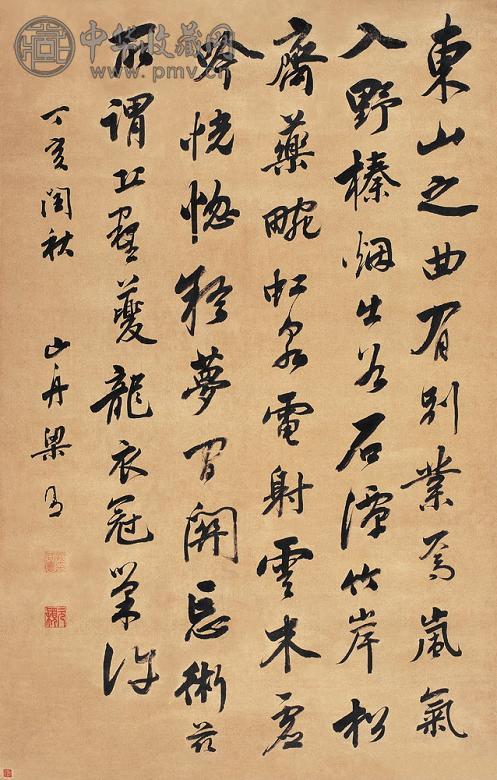 中华收藏网
www.pmv.cn
東山之曲有別業焉嵐氣
入野榛烟出谷石潭竹岸松
齋藥畹虹泉電射雲木虛
吟恍惚疑夢間關忘術茲
所謂丘壑夔龍衣冠巢許
丁亥閏秋 山舟梁